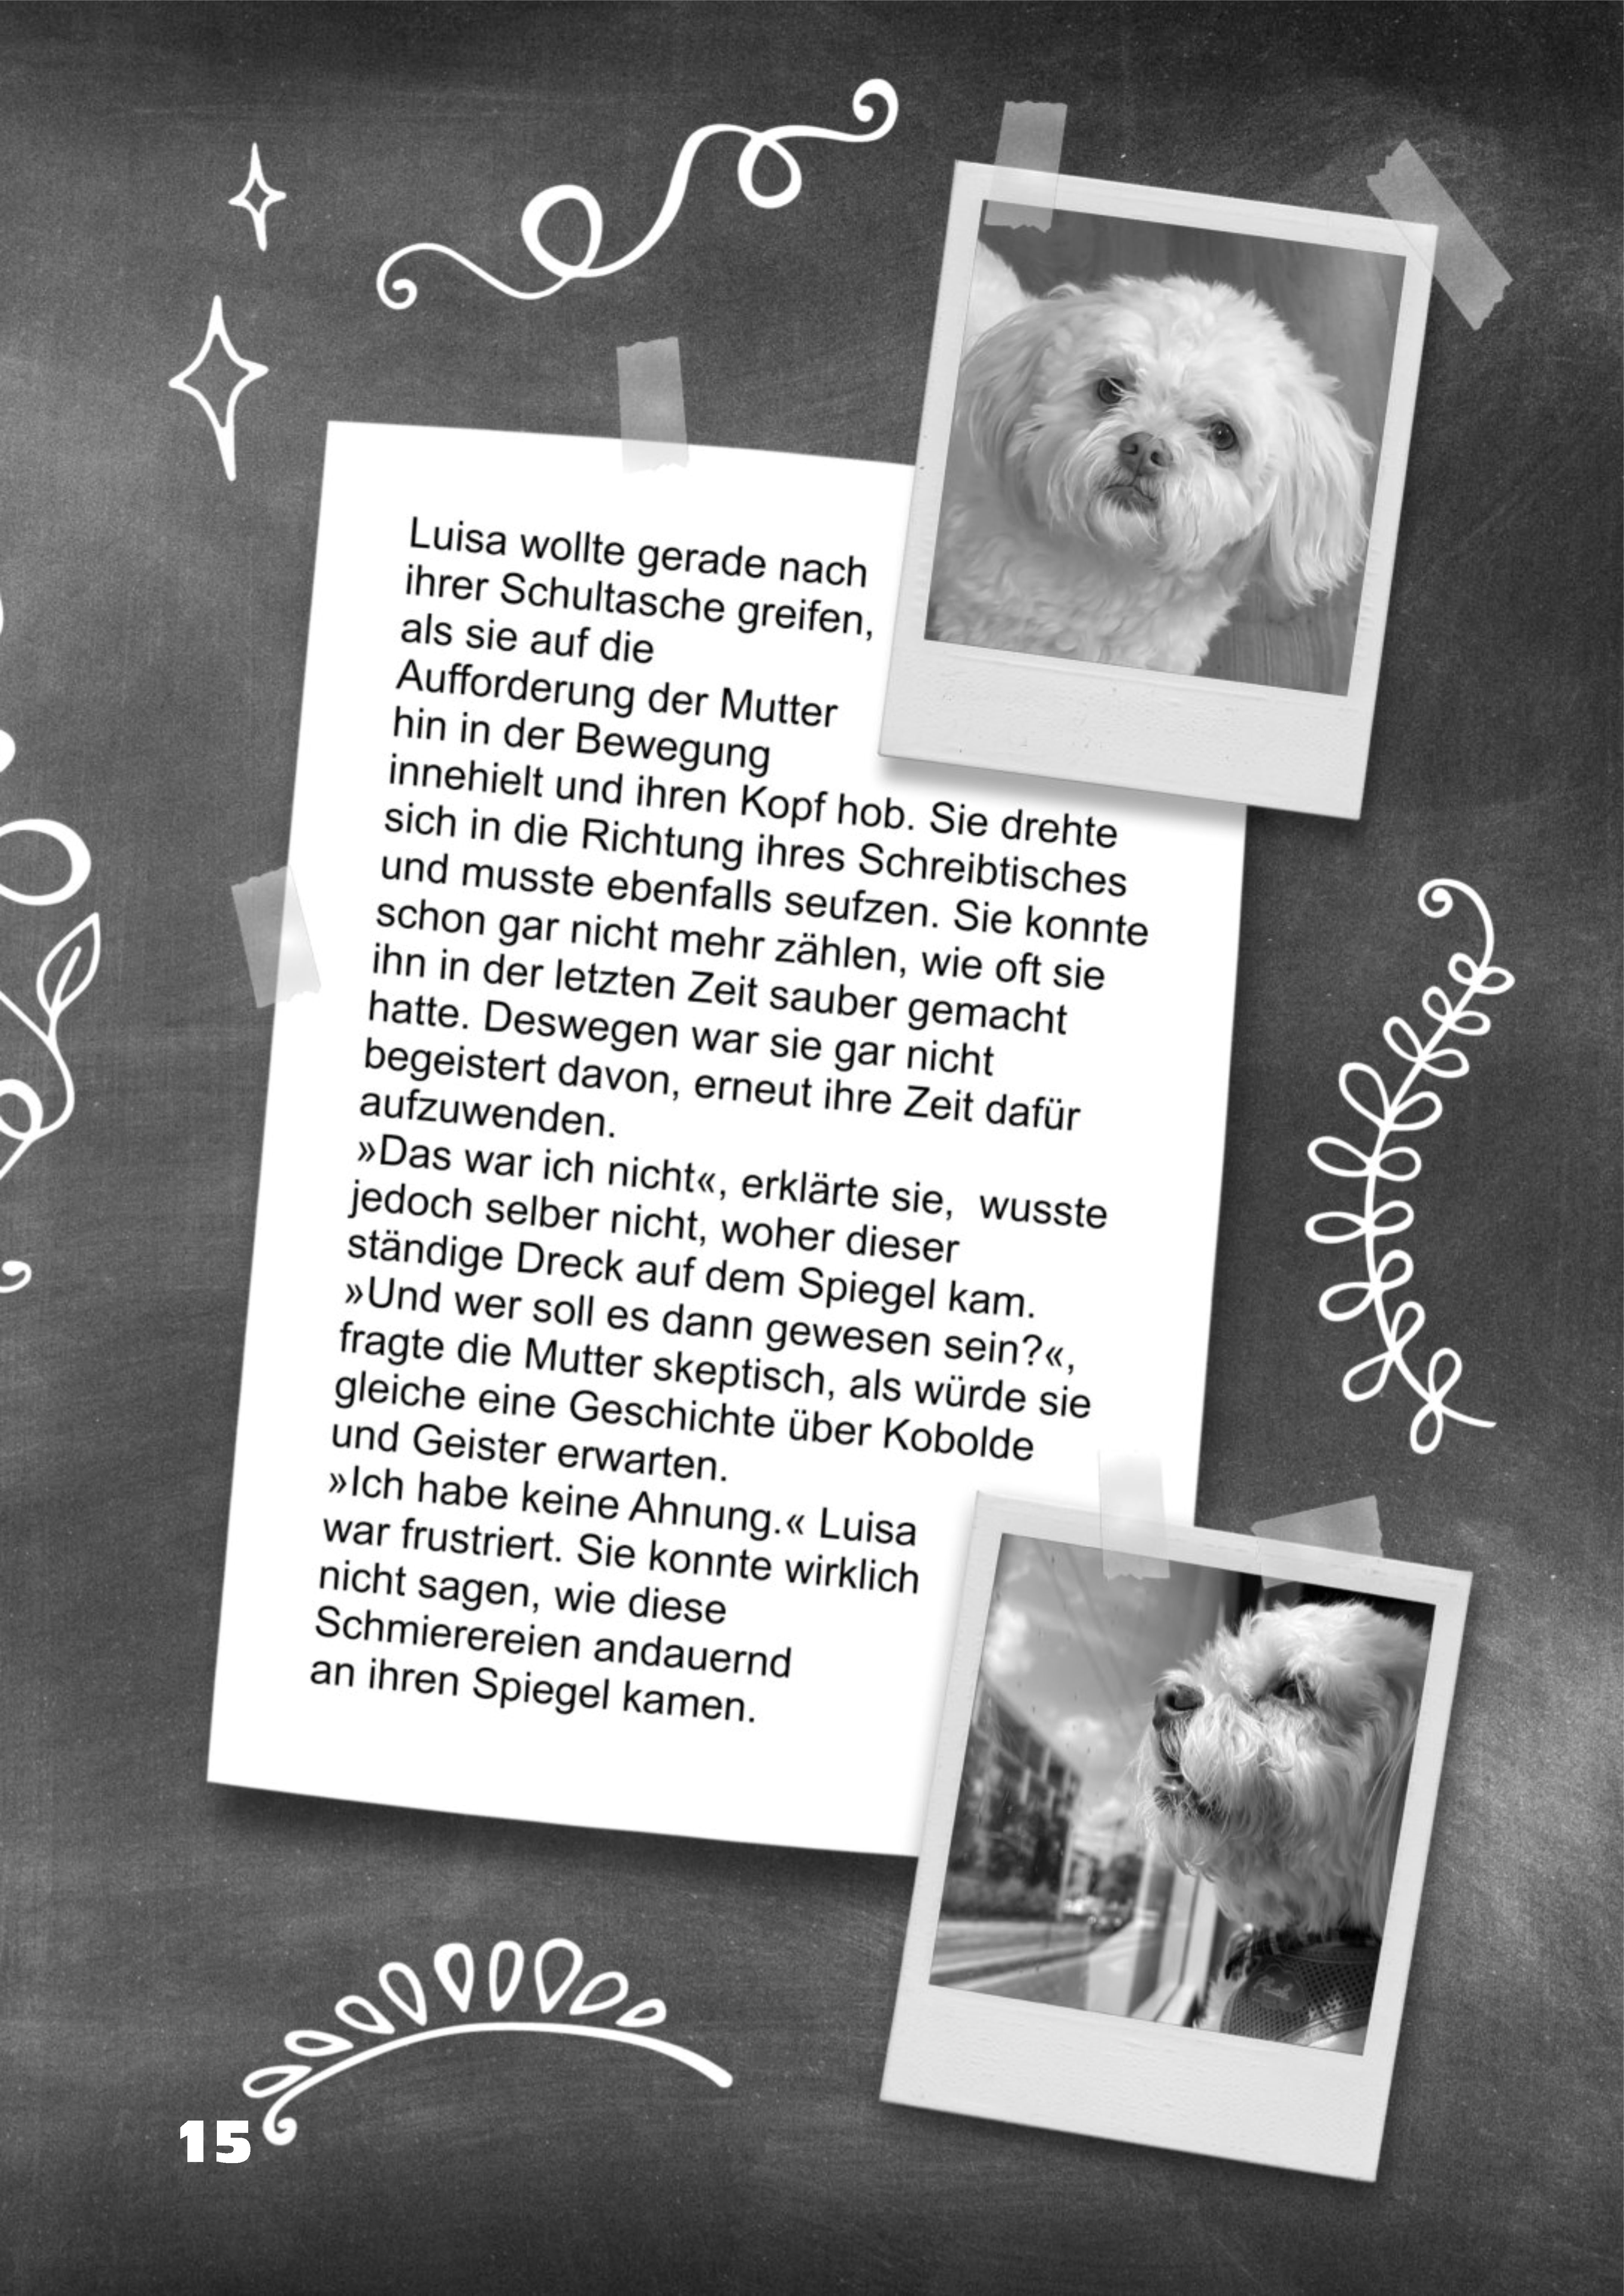 Luisa wollte gerade nach
ihrer Schultasche greifen,
als sie auf die
Aufforderung der Mutter
hin in der Bewegung
innehielt und ihren Kopf hob. Sie drehte
sich in die Richtung ihres Schreibtisches
und musste ebenfalls seufzen. Sie konnte
schon gar nicht mehr zählen, wie oft sie
ihn in der letzten Zeit sauber gemacht
hatte. Deswegen war sie gar nicht
begeistert davon, erneut ihre Zeit dafür
aufzuwenden.
»Das war ich nicht«, erklärte sie,  wusste
jedoch selber nicht, woher dieser
ständige Dreck auf dem Spiegel kam.
»Und wer soll es dann gewesen sein?«,
fragte die Mutter skeptisch, als würde sie
gleiche eine Geschichte über Kobolde
und Geister erwarten.
»Ich habe keine Ahnung.« Luisa
war frustriert. Sie konnte wirklich
nicht sagen, wie diese
Schmierereien andauernd
an ihren Spiegel kamen.
15